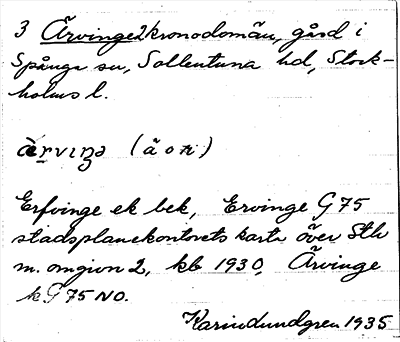 3 Ärvinge 2 kronodomän, gård i
Spånga sn, Sollentuna hd, Stock-
holms l.
ärviŋə (ä o n)
Erfvinge ek bek, Ervinge G75
stadsplanekontorets karta över Sthlm
m. omgivn 2, kb 1930, Ärvinge
k G75 NO.
Karin Lundgren 1935